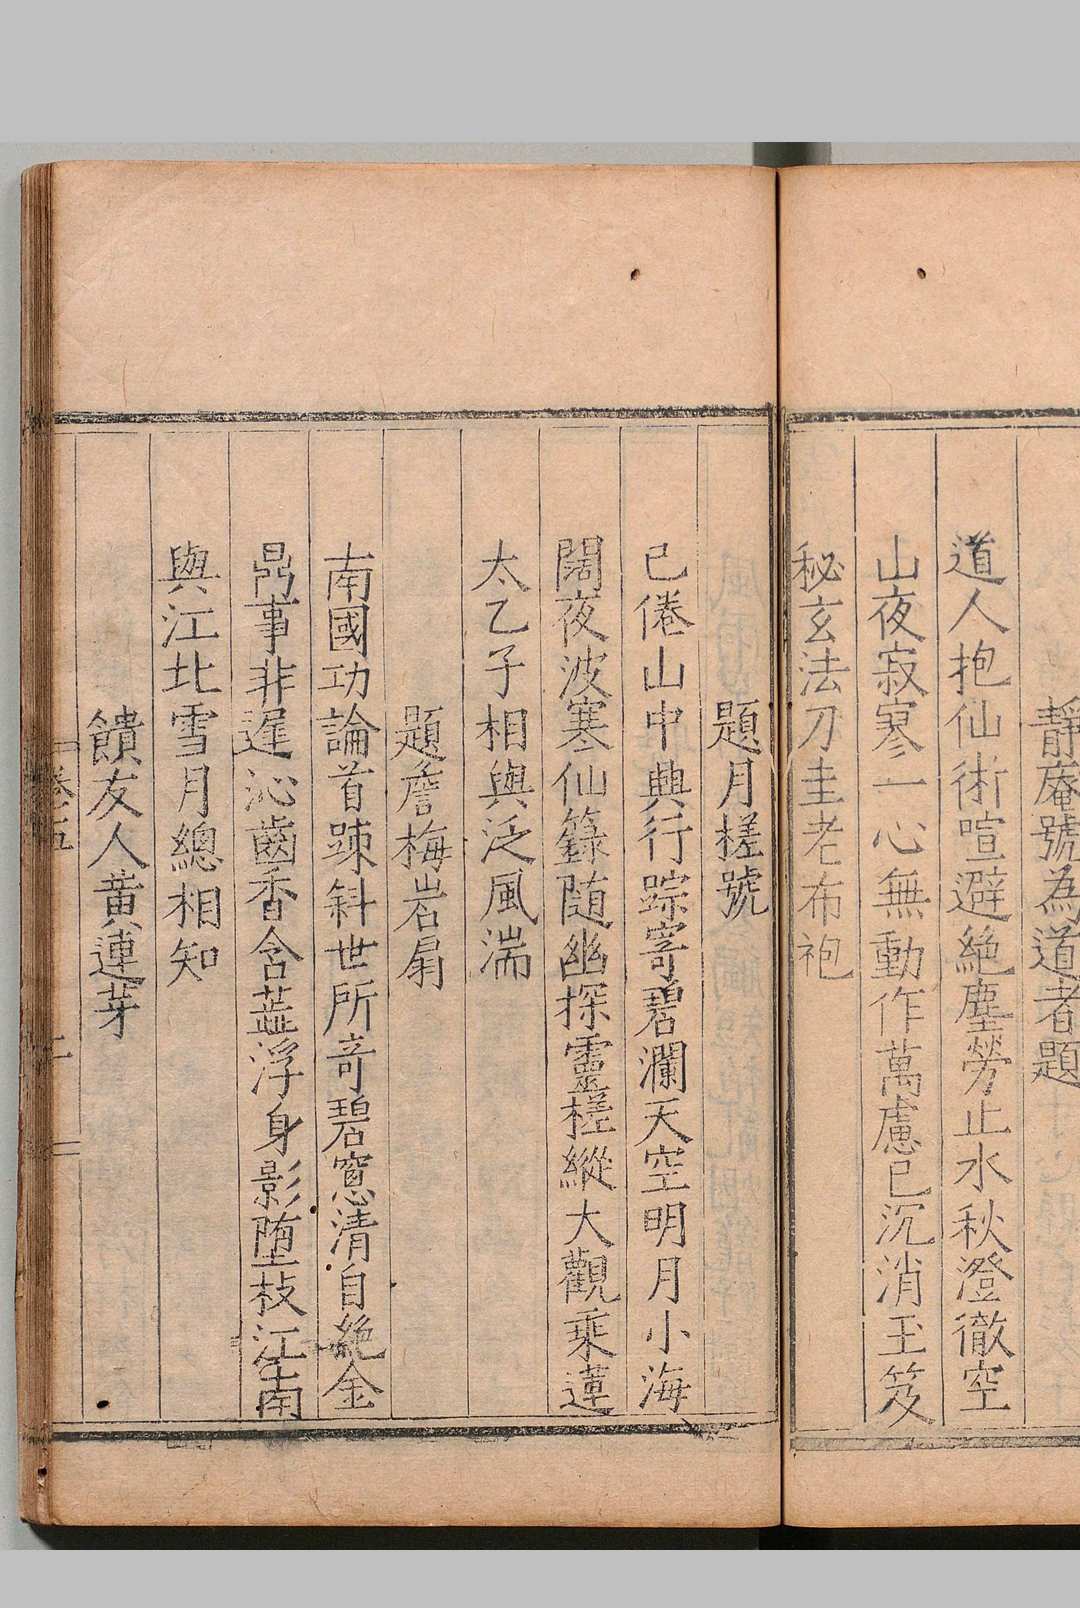 靜庵號為道者題
道人抱仙術喧避絶塵勞止水秋澄徹空
山夜寂寥一心無動作萬慮已沉消玉笈
秘玄法刀圭老布袍
題月槎號
已倦山中興行踪寄碧瀾天空明月小海
闊夜波寒仙籙随幽探靈槎縱大觀乘蓮
太乙子相與泛風湍
題詹梅岩扇
南國功論首踈斜世所竒碧窻清自絶金
鼎事非遲沁齒香含蕋浮身影堕枝江南
與江北雪月總相知
饋友人黄連芽
卷五